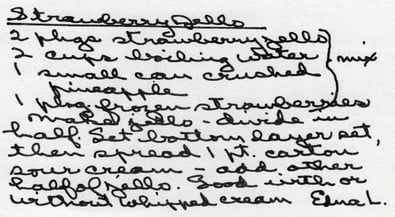 Strawberry Jello
2 pkgs strawberry jello
2 cups boiling water } mix
1 small can crushed
pineapple
1 pkg frozen strawberries
Make jello - divide in
half. Set bottom layer set,
then spread 1 pt. carton
sour cream - add other
half of jello. Good with or
without whipped cream Edna L.